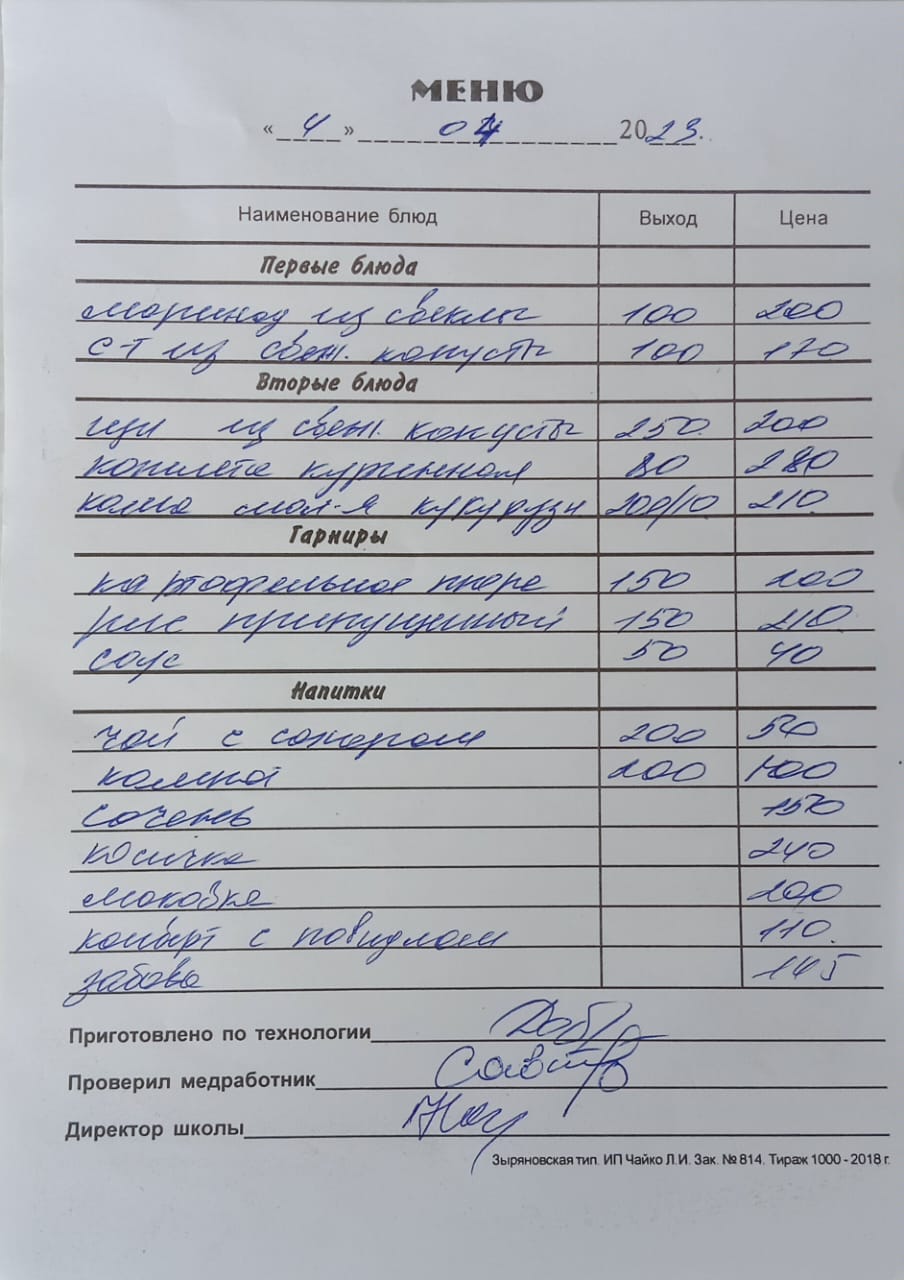 МЕНЮ
« 4 » 04 2023.
Наименование блюд Выход Цена
Первые блюда
маринад из свеклы 100 200
с-т из свеж. капусты 100 170
Вторые блюда
щи из свеж. капусты 250 200
котлета куринная 80 280
каша мол-я кукурузн 200/10 210
Гарниры
картофельное пюре 150 200
рис припущенный 150 210
соус 50 40
Напитки
чай с сахаром 200 50
компот 200 100
сочень 150
косичка 240
маковка 200
конверт с повидлом 110
забава 145
Приготовлено по технологии
Проверил медработник
Директор школы
Зыряновская тип. ИП Чайко Л.И. Зак. № 814. Тираж 1000 - 2018 г.